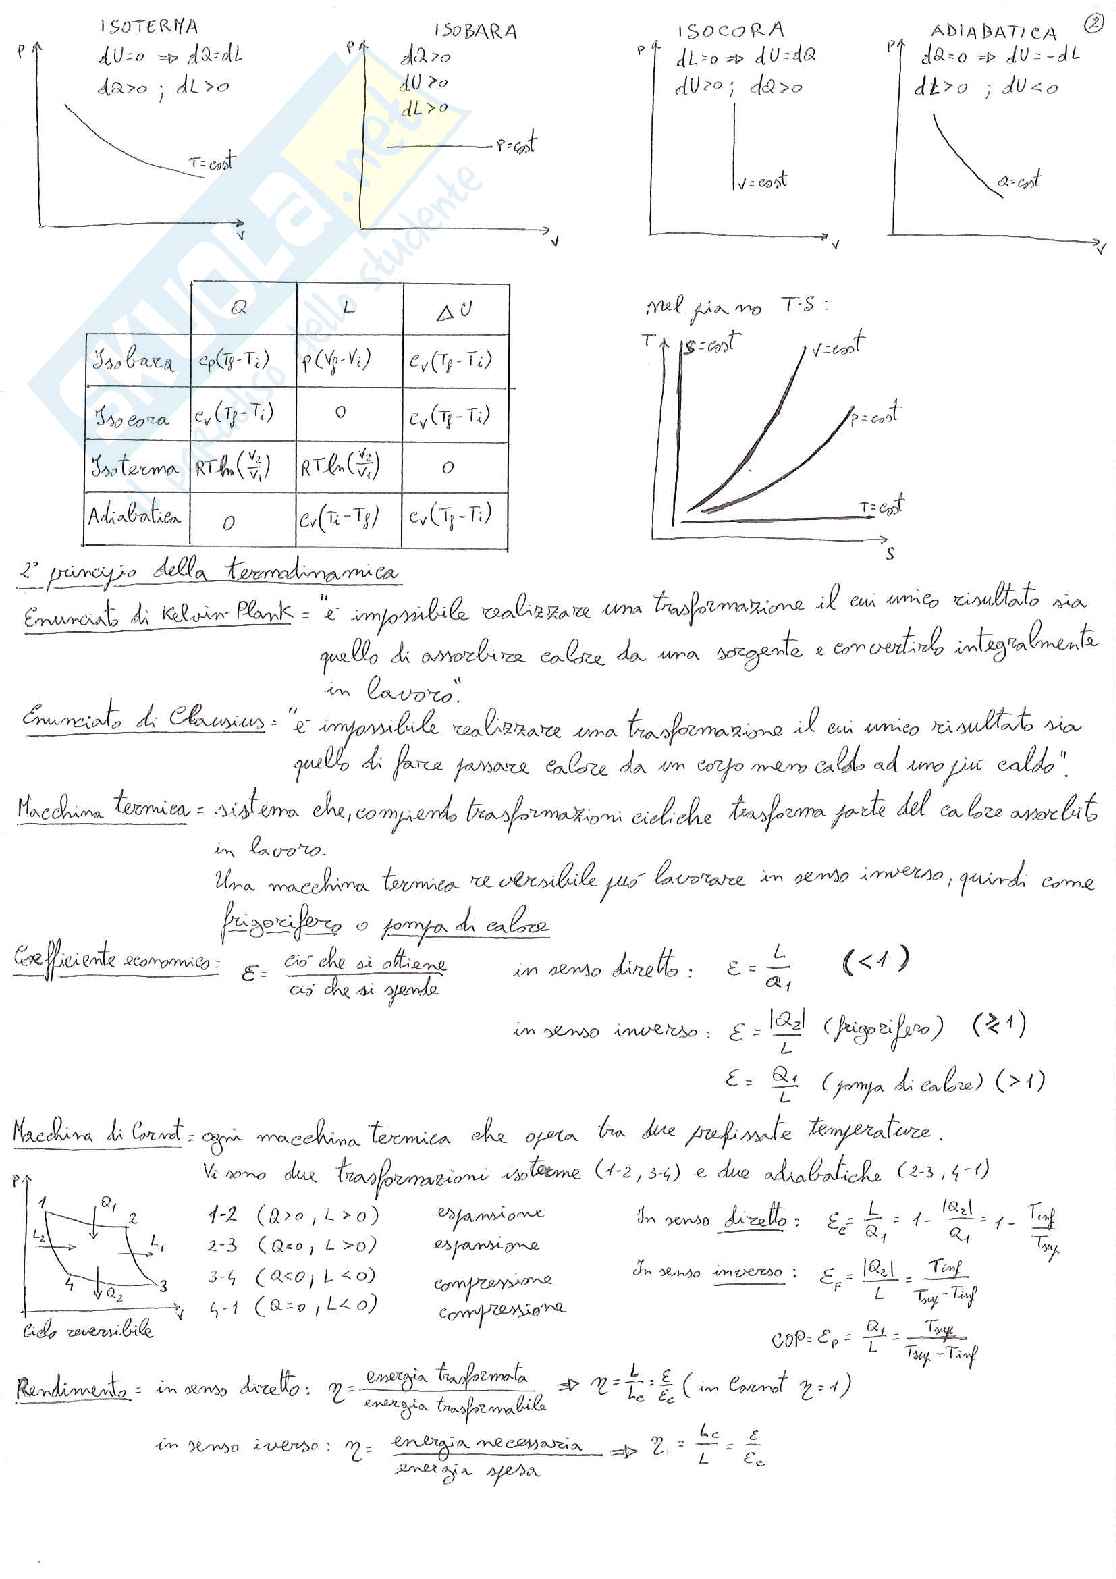 2
ISOTERMA
dU=0 ⇒ dQ=dL
dQ>0 ; dL>0
P
T=cost
V
ISOBARA
dQ>0
dU>0
dL>0
P
P=cost
V
ISOCORA
dL=0 ⇒ dU=dQ
dU>0; dQ>0
P
V=cost
V
ADIABATICA
dQ=0 ⇒ dU=-dL
dL>0 ; dU<0
P
Q=cost
V
SKUOLA.net
il paradiso dello studente
Q L ΔU
Isobara cp(Tf-Ti) p(Vf-Vi) cv(Tf-Ti)
Isocora cv(Tf-Ti) 0 cv(Tf-Ti)
Isoterma RTln(V2/V1) RTln(V2/V1) 0
Adiabatica 0 cv(Ti-Tf) cv(Tf-Ti)
nel piano T-S:
T
S=cost
V=cost
P=cost
T=cost
S
2° principio della termodinamica
Enunciato di Kelvin-Plank = "è impossibile realizzare una trasformazione il cui unico risultato sia
quello di assorbire calore da una sorgente e convertirlo integralmente
in lavoro".
Enunciato di Clausius = "è impossibile realizzare una trasformazione il cui unico risultato sia
quello di fare passare calore da un corpo meno caldo ad uno più caldo".
Macchina termica = sistema che, compiendo trasformazioni cicliche trasforma parte del calore assorbito
in lavoro.
Una macchina termica reversibile può lavorare in senso inverso, quindi come
frigorifero o pompa di calore
Coefficiente economico: ε = ciò che si ottiene / ciò che si spende in senso diretto: ε = L/Q1 (<1)
in senso inverso: ε = |Q2|/L (frigorifero) (≷1)
ε = Q1/L (pompa di calore) (>1)
Macchina di Carnot = ogni macchina termica che opera tra due prefissate temperature.
Vi sono due trasformazioni isoterme (1-2, 3-4) e due adiabatiche (2-3, 4-1)
P
1
Q1
2
L2
L1
4
Q2
3
V
Ciclo reversibile
1-2 (Q>0, L>0) espansione
2-3 (Q=0, L>0) espansione
3-4 (Q<0, L<0) compressione
4-1 (Q=0, L<0) compressione
In senso diretto: εc = L/Q1 = 1 - |Q2|/Q1 = 1 - Tinf/Tsup
In senso inverso: εF = |Q2|/L = Tinf/(Tsup-Tinf)
COP = εP = Q1/L = Tsup/(Tsup-Tinf)
Rendimento = in senso diretto: η = energia trasformata / energia trasformabile ⇒ η = L/Lc = ε/εc (in Carnot η=1)
in senso iverso: η = energia necessaria / energia spesa ⇒ η = Lc/L = ε/εc